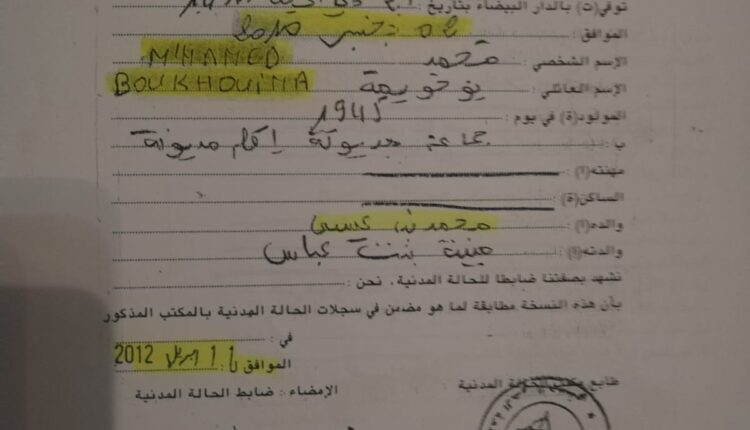 توفي(ت) بالدار البيضاء بتاريخ :
الموافق :
الإسم الشخصي : محمد M'HAMED
الإسم العائلي : بوخويمة BOUKHOUIMA
المولود(ة) في يوم : 1945
ب : جماعة مديونة
مهنته(ا) :
الساكن(ة) :
والده(ا) : محمد بن عيسى
والدته(ا) : بنت عباس
نشهد بصفتنا ضابطا للحالة المدنية، نحن :
بأن هذه النسخة مطابقة لما هو مضمن في سجلات الحالة المدنية بالمكتب المذكور
في :
الموافق : 11 ابريل 2012
طابع مكتب الحالة المدنية :
الإمضاء : ضابط الحالة المدنية